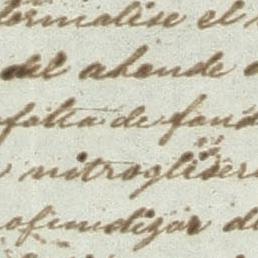 formalise el
del ahonde
falta de fond
nitrogliser
ofundizar d